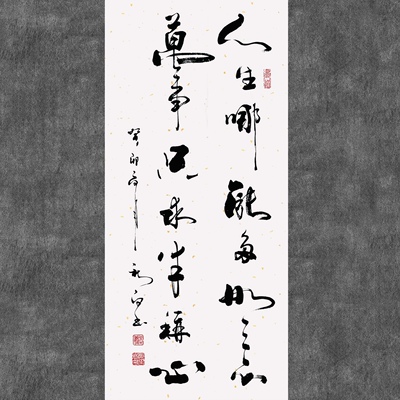 人生哪能多如意
萬事只求半稱心
癸卯
书